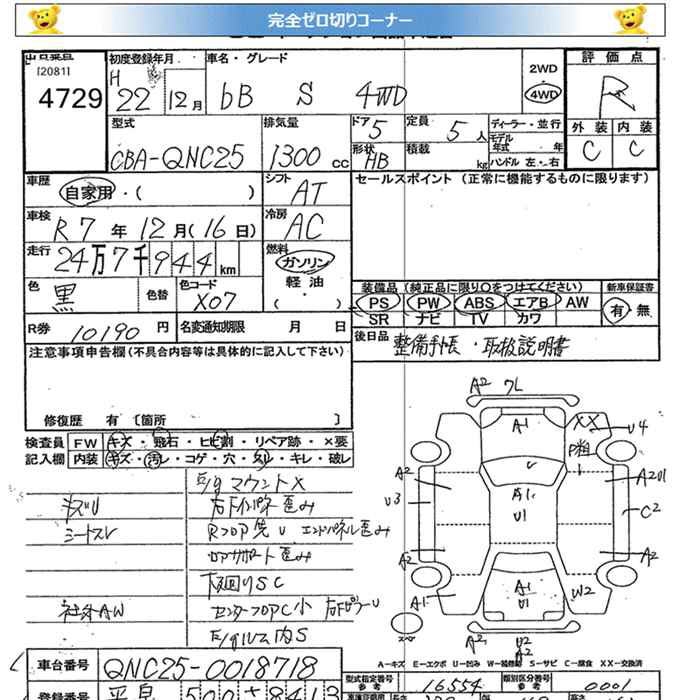 完全ゼロ切りコーナー
初度登録年月 車名・グレード 評価点
[2081] H 2WD
4729 22 12月 bB S 4WD 4WD R
型式 排気量 ドア 5 定員 5人 ディーラー・並行 外装 内装
CBA-QNC25 1300 cc 形状 HB 積載 kg モデル年式 年 ハンドル 左・右 C C
車歴 自家用・( ) シフト AT セールスポイント (正常に機能するものに限ります)
車検 R7年 12月(16日) 冷房 AC
走行 24万7千944km 燃料 ガソリン・軽油・( )
色 黒 色替 色コード X07 装備品 (純正品に限り○をつけてください) 新車保証書
PS PW ABS エアB AW 有・無
R券 10190円 名変通知期限 月 日 SR ナビ TV カワ
後日品 整備手帳・取扱説明書
注意事項申告欄(不具合内容等は具体的に記入して下さい)
修復歴 有 〔箇所 〕
検査員 FW キズ・飛石・ヒビ割・リペア跡・×要
記入欄 内装 キズ・汚レ・コゲ・穴・スレ・キレ・破レ
E/gマウントX
キズU 右Fインパネ歪み
シートスレ RフロアU エンドパネル歪み
コアサポート歪み
下廻りSC
社外AW センターフロアC小 右FピラーU
E/gルーム内S
A2 フL
A1 XX U4
P粗
A2 U A201
U3 A1 U1 C2
A2 A2
A1 A1 U1 W2
スペア
A2 U2 A2
A-キズ E-エクボ U-凹み W-補修跡 S-サビ C-腐食 XX-交換済
車台番号 QNC25-0018718
型式指定番号 参考 16554 類別区分番号 参考 0001